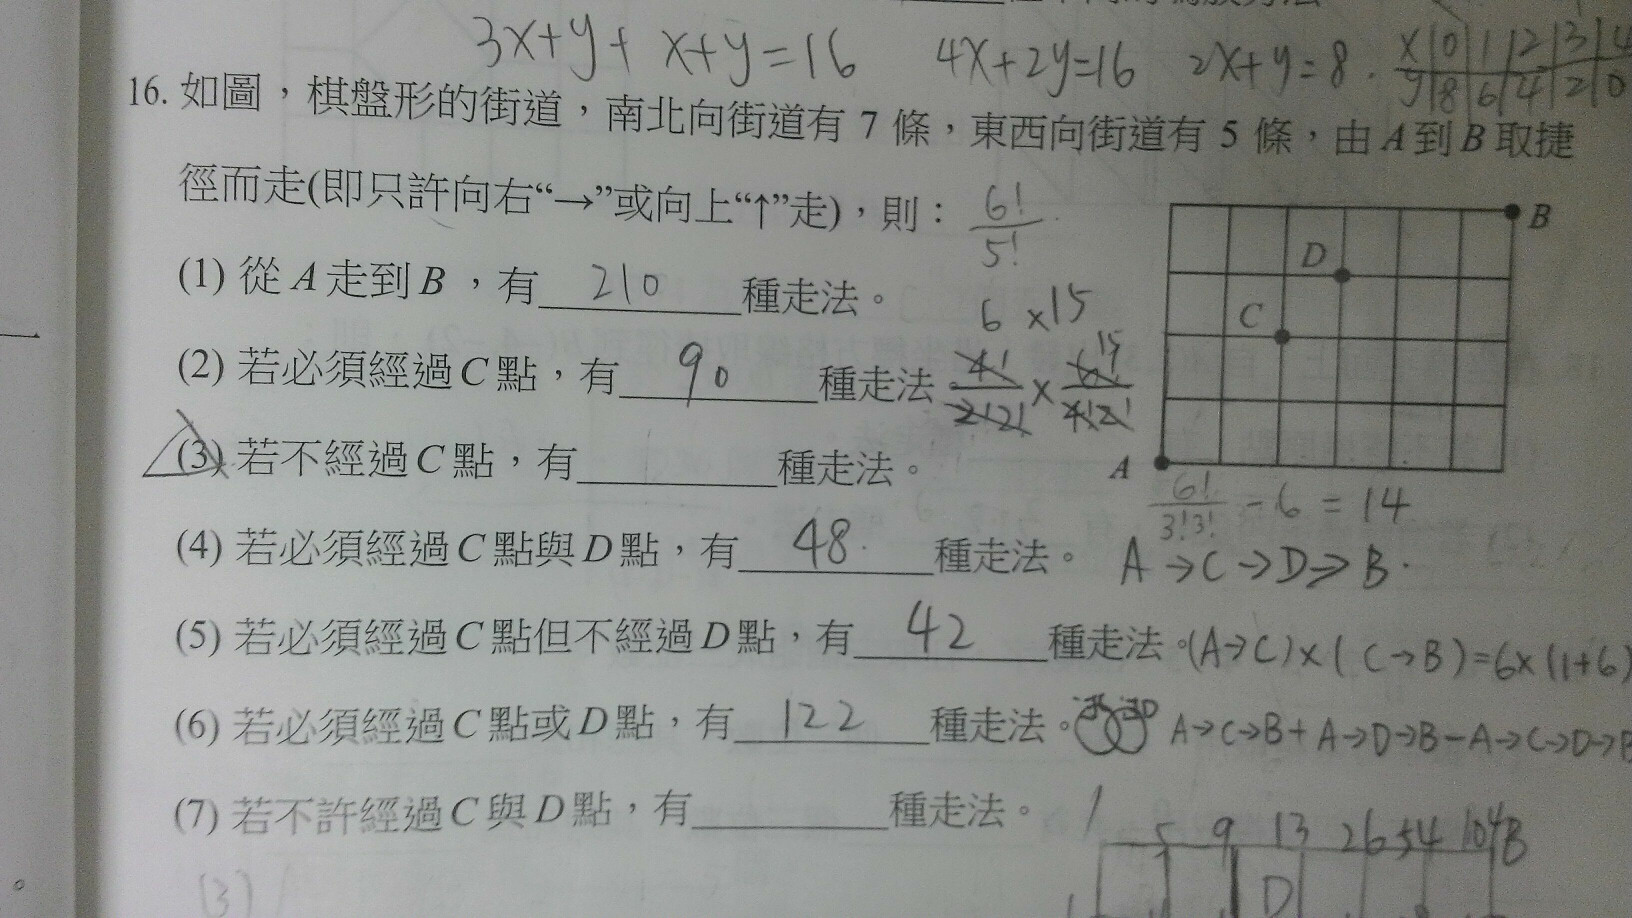 3x+y+ x+y=16 4x+2y=16 2x+y=8.
x 0 1 2 3 4
y 8 6 4 2 0
16. 如圖，棋盤形的街道，南北向街道有 7 條，東西向街道有 5 條，由 A 到 B 取捷
徑而走(即只許向右“→”或向上“↑”走)，則： 6!/5!
(1) 從 A 走到 B ，有 210 種走法。
6 ×15
(2) 若必須經過 C 點，有 90 種走法 4!/2!2! × 6!/4!2! 15
(3) 若不經過 C 點，有 種走法。
B
D
C
A
6!/3!3! - 6 = 14
(4) 若必須經過 C 點與 D 點，有 48. 種走法。 A→C→D→B.
(5) 若必須經過 C 點但不經過 D 點，有 42 種走法。(A→C)×( C→B)=6×(1+6)
(6) 若必須經過 C 點或 D 點，有 122 種走法。 A→C→B+A→D→B-A→C→D→B
(7) 若不許經過 C 與 D 點，有 種走法。
1 5 9 13 26 54 104 B
D
(3)